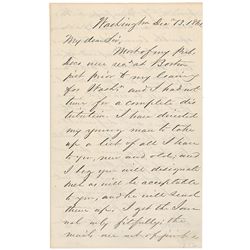 Washington Dec. 13, 186
My dear Sir,
Most of my Pub.
Docs were rec'd at Boston
just prior to my leaving
for Wash'n and I had not
time for a complete dis
tribution. I have directed
my young man to take
up a list of all I have
to you, new and old; and
I beg you will designate
such as will be acceptable
to you, and he will send
them up. I get the Jour
nal only fitfully; the
mails are out of joint &